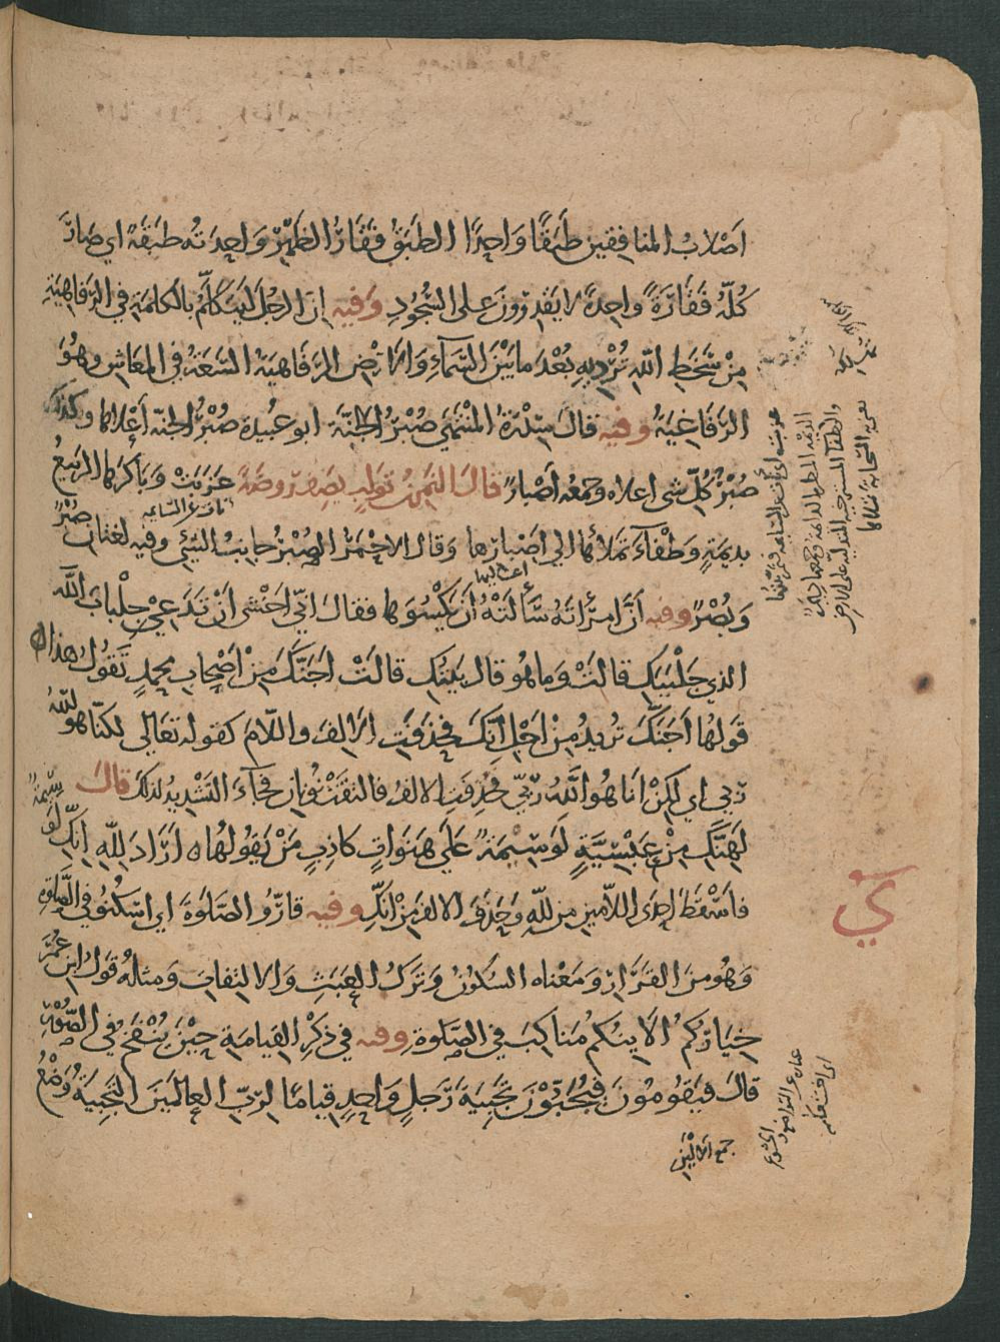 اَصْلَابُ المنافقين طَبَقًا وَاحِدًا الطَبَقُ فَقَارُ الظَهْرِ وَاحِدَتُه طَبَقَةٌ اي صَارَ
كُلُّهُ فَقَارَةً واحِدَةً لا يَقْدِرُونَ على السُّجُودِ وَفيهِ اِنَ الرجُلَ لَيَتَكَلَّمُ بالكلمة في الرَفَاهِيَةِ
مِنْ سَخَطِ اللّهِ تُرْدِيهِ بُعْدَ ما بَيْنَ السَّمَاءِ وَالاَرْضِ الرَفَاهِيَةُ السَّعَةُ في المَعَاشِ وهُوَ
الرَّفَاغِيَةُ وفيه قالَ سِدْرَةُ المُنْتَهَى صُبْرُ الجَنَّةِ ابو عُبيدة صُبْرُ الجنّة اَعْلاهَا وكذلك
صُبْرُ كُلِّ شى اعلاه وجمعُه اَصْبَارٌ قالَ النَمِرُ بن تَولَبٍ يَصِفُ رَوضَةً عَزَبَتْ وَبَاكَرَهَا الرَبِيعُ
بِدِيمَةٍ وَطْفَاءَ تَمْلأُهَا الى اَصْبَارِها وَقَالَ الاحْمَرُ الصُبْرُ جانِبُ الشَيْءِ وفيه لغتان صُبْرٌ
وَبُصْرٌ وفيه اَنَّ امرَأَتَهُ سَأَلَتْهُ اَنْ يَكْسُوَهَا فقالَ اِنّي اَخْشَى اَنْ تَدَعِي جِلْبَابَ اللّه
الذي جَلْبَبَكِ قالَتْ وَمَا هُو قالَ بَيْتُكِ قالَتْ اَجَنَّكَ مِنْ اَصْحَابِ محمدٍ تَقُولُ هذا
قَولُهَا اَجَنَّكَ تُرِيدُ مِنْ اَجْلِ اَنَّكَ فَحَذَفَتِ الاَلِفَ واللّامَ كقوله تعَالى لكنّا هو اللّهُ
رَبّي اي لكِنْ اَنَا هُوَ اللّهُ رَبّي فحُذِفَتِ الالفُ فالتَقَتْ نُونَانِ فجَاءَ التَشْدِيدُ لذلكَ قالَ
لَهِنَّكِ مِنْ عَبْسِيَّةٍ لَوَسِيمَةٌ عَلَى هَنَوَاتٍ كاذِبٍ مَنْ يَقُولُهَا ه اَرَادَ للّهِ اِنَّكِ لَوَسِيمَةٌ
فاَسْقَطَ اِحْدَى اللّامَينِ من للّهِ وحَذَفَ الالفَ مِنْ اِنَّكِ وفيه قارُّوا الصَلوةَ اي اسْكُنُوا في الصَّلوةِ
وَهُو منَ القَرَارِ وَمَعْنَاه السُكُونُ وَتَركُ العَبَثِ وَالالتِفَاتِ وَمثلُه قَولُ ابنِ عُمَرَ
خِيَارُكُمْ اَلايَنُكُمْ مَنَاكِبَ في الصَلوة وفيه في ذِكْرِ القِيَامَةِ حِيْنَ يُنْفَخُ في الصُّورِ
قالَ فيَقُومُونَ فَيُجَبُّونَ تَجْبِيَةَ رَجُلٍ وَاحِدٍ قِيامًا لِرَبِّ العالَمينَ التَجْبِيَةُ وَضْعُ
جمع الاَلْيَنِ